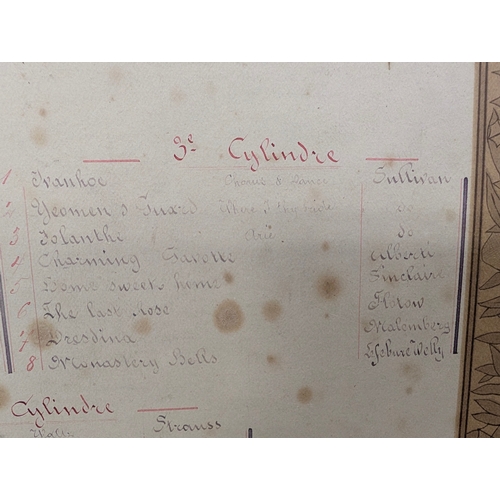 3e Cylindre
1 Ivanhoe Chorus & Dance Sullivan
2 Yeomen o Guard Were I thy bride do
3 Iolanthe Arie do
4 Charming Gavotte Alberti
5 Home sweet home Sinclaire
6 The last Rose Flotow
7 Dresdina Malemberg
8 Monastery Bells Lefebure Welly
Cylindre
Waltz Strauss